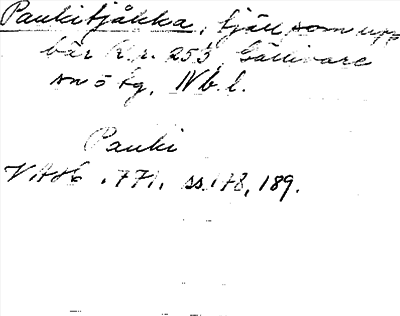 Paukitjåkka, fjäll som upp
bär R.r. 253, Gällivare
sn o tg, Nb. l.
Pauki
VAH .771. ss. 178, 189.